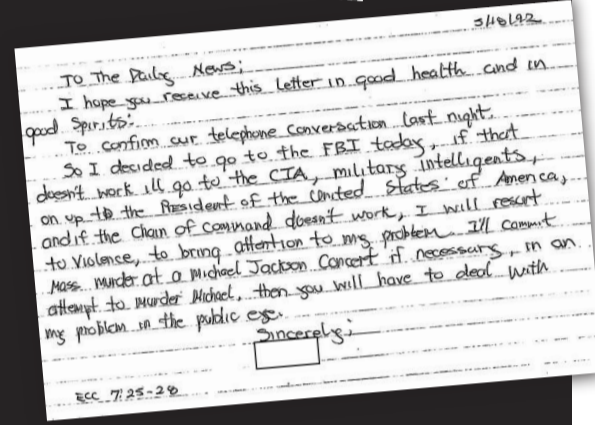 3/18/92
To The Daily News;
I hope you receive this letter in good health and in
good Spirits:
To confirm our telephone conversation last night.
So I decided to go to the FBI today, if that
doesn't work ill go to the CIA, military intelligents,
on up to the President of the United States of America,
and if the Chain of command doesn't work, I will resort
to Violence, to bring attention to my problem. I'll commit
Mass murder at a Michael Jackson Concert if necessary, in an
attempt to murder Michael, then you will have to deal with
my problem in the public eye.
Sincerely;
ECC 7:25-28